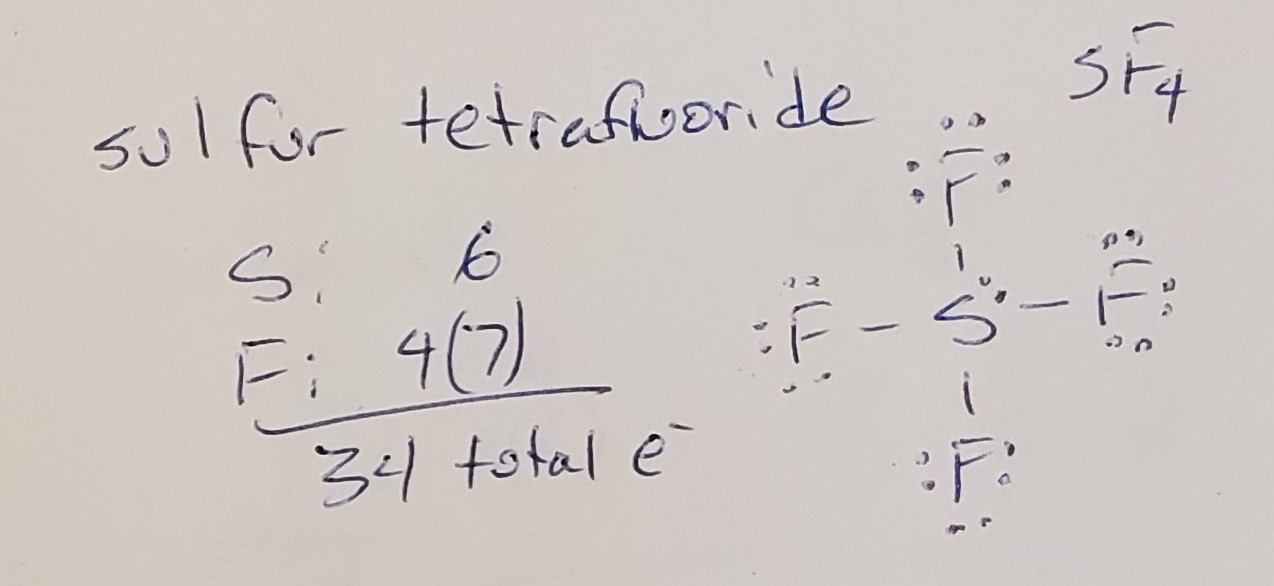 sulfur tetrafluoride SF₄
S: 6
F: 4(7)
34 total e⁻
F
F - S - F
F